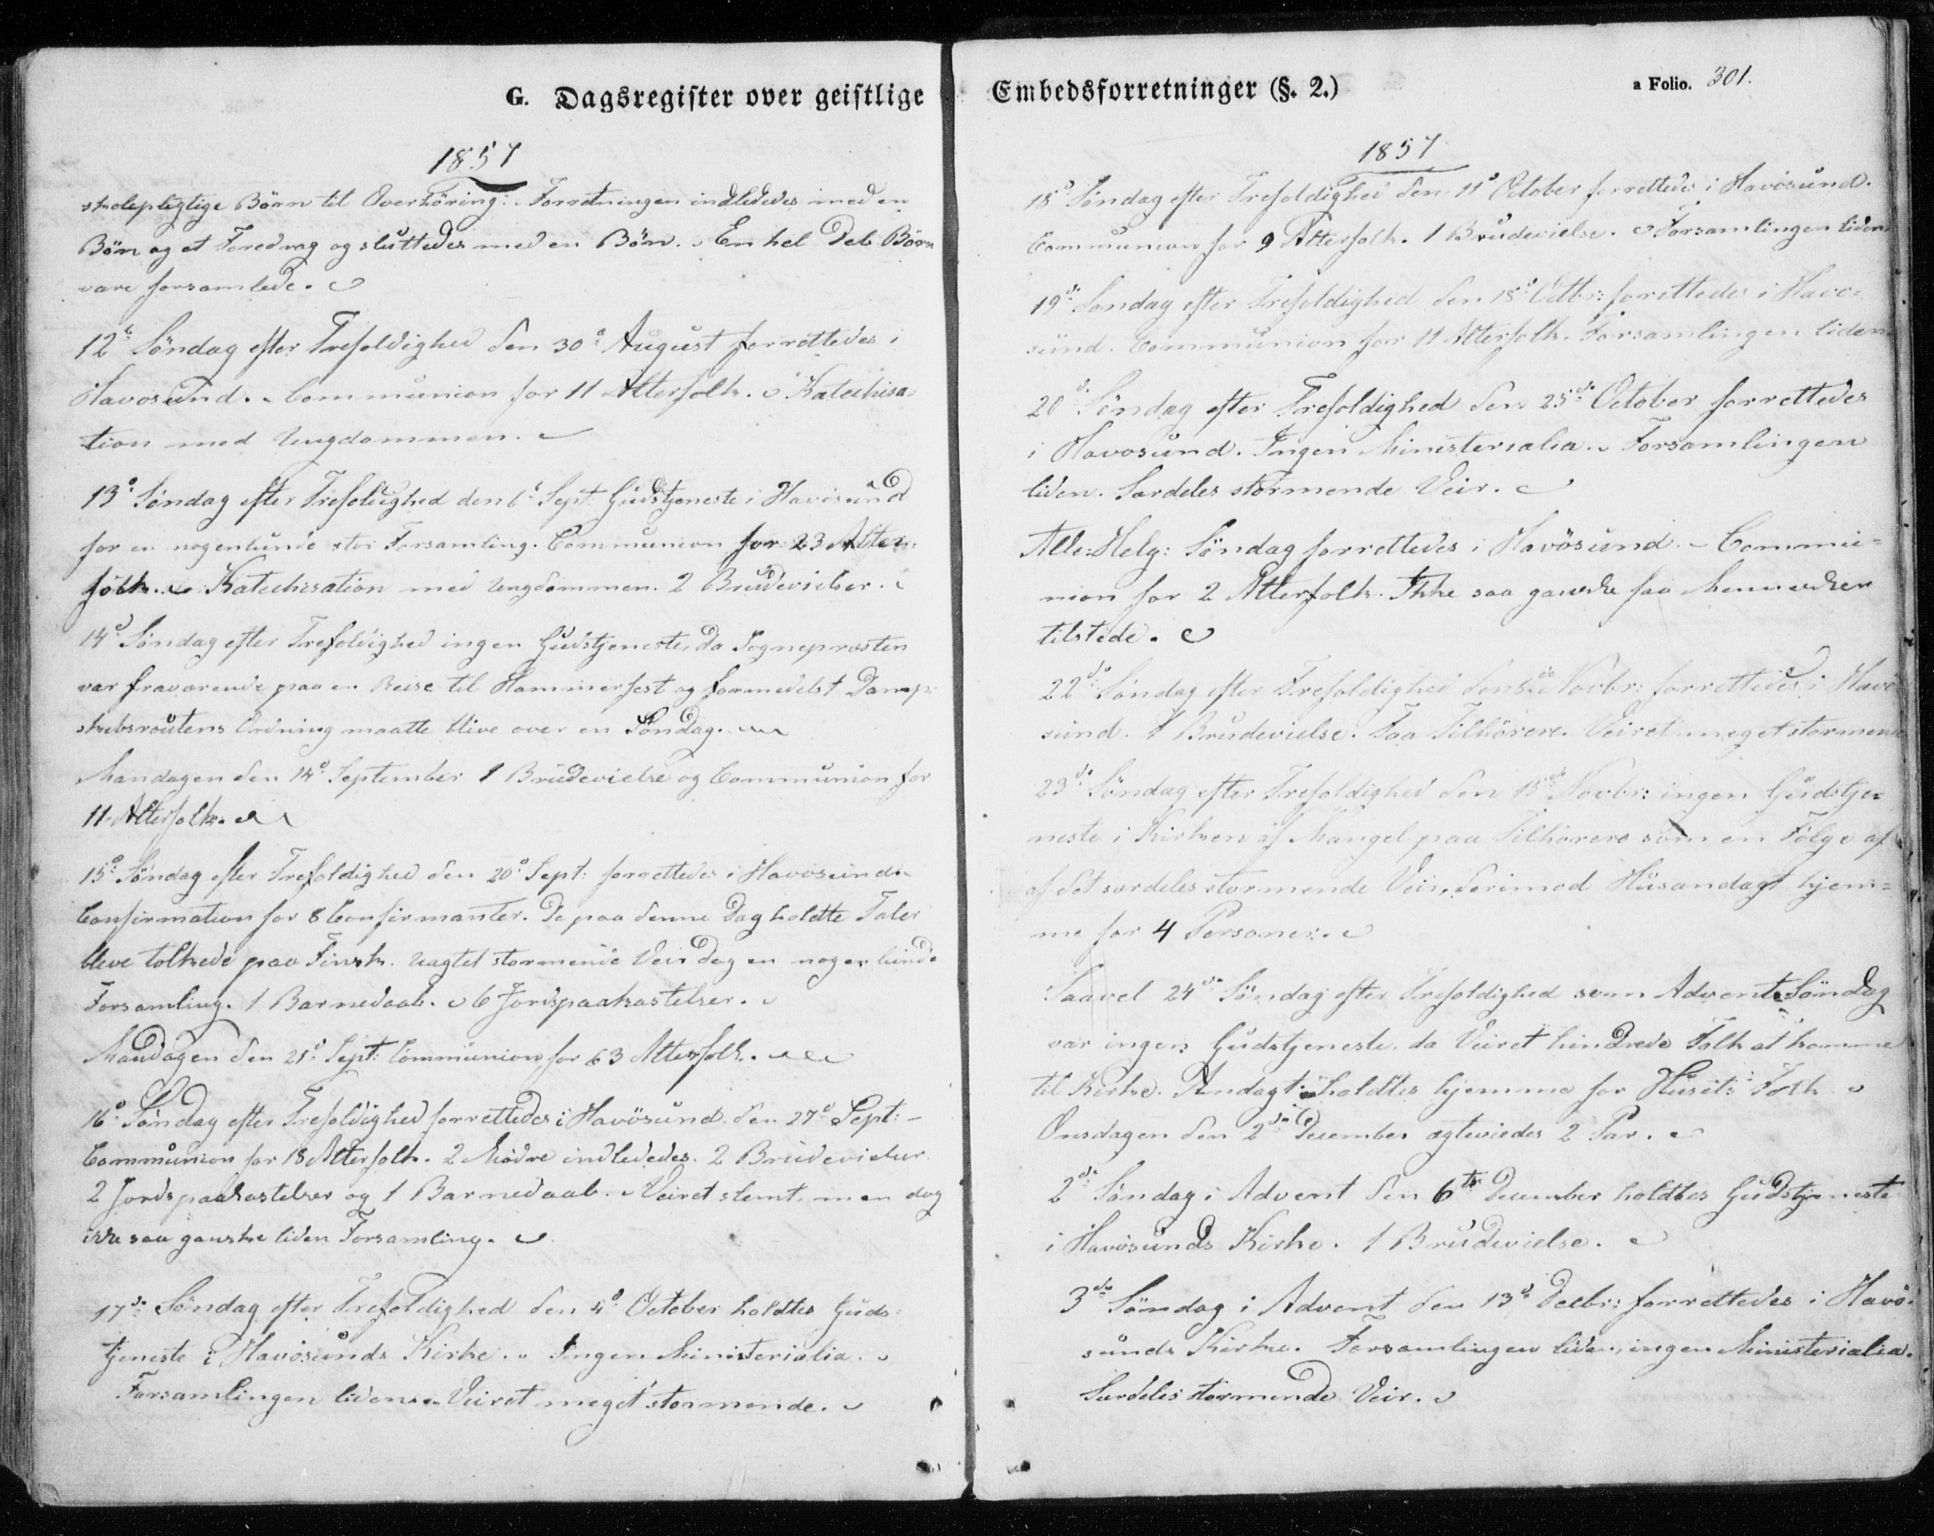 G. Dagsregister over geistlige
1857
skolepligtige Börn til Overhöring. Forretningen indlededes med en
Bön og et Foredrag og sluttedes med en Bön. En hel Del Börn
vare forsamlede.
12te Söndag efter Trefoldighed den 30te August forrettedes i
Havosund. Communion for 11 Alterfolk. Katechisa-
tion med Ungdommen.
13de Söndag efter Trefoldighed den 6te Sept. Gudstjeneste i Havösund
for en nogenlunde stor Forsamling. Communion for 23 Alter-
folk. Katechisation med Ungdommen. 2 Brudevielser.
14de Söndag efter Trefoldighed ingen Gudstjeneste, da Sognepræsten
var fraværende paa en Reise til Hammerfest og formedelst Damp-
skibsroutens Ordning maatte blive over en Söndag.
Mandagen den 14de September 1 Brudevielse og Communion for
11 Alterfolk.
15de Söndag efter Trefoldighed den 20de Sept: forrettedes i Havosund.
Confirmation for 8 Confirmanter. De paa denne Dag holdte Taler
bleve tolkede paa Finsk. Uagtet stormende Veir dog en nogenlunde
Forsamling. 1 Barnedaab. 6 Jordspaakastelser.
Mandagen den 21de Sept: Communion for 63 Alterfolk.
16de Söndag efter Trefoldighed forrettedes i Havösund den 27de Sept: -
Communion for 18 Alterfolk. 2 Mödre indlededes. 2 Brudevielser.
2 Jordspaakastelser og 1 Barnedaab. Veiret slemt, men dog
ikke saa ganske liden Forsamling.
17de Söndag efter Trefoldighed den 4de October holdtes Guds-
tjeneste i Havösunds Kirke. Ingen Ministerialia.
Forsamlingen liden. Veiret meget stormende.
Embedsforretninger (§. 2.)
a Folio. 301.
1857
18de Söndag efter Trefoldighed den 11te October forrettedes i Havösund.
Communion for 9 Alterfolk. 1 Brudevielse. Forsamlingen liden
19de Söndag efter Trefoldighed den 18de Octbr: forrettedes i Havo-
sund. Communion for 11 Alterfolk. Forsamlingen liden
20de Söndag efter Trefoldighed den 25de October forrettedes
i Havosund. Ingen Ministerialia. Forsamlingen
liden. Særdeles stormende Veir.
Alle: Helg: Söndag forrettedes i Havösund. - Commu-
nion for 2 Alterfolk. Ikke saa ganske faa Mennesker
tilstede.
22de Söndag efter Trefoldighed den Novbr: forrettedes i Havo
sund. 1 Brudevielse. Faa Tilhörere. Veiret meget stormende
23de Söndag efter Trefoldighed den 15de Novbr: ingen Gudstje-
neste i Kirken af Mangel paa Tilhörere som en Fölge af
af det særdeles stormende Veir, derimod Husandagt hjem-
me for 4 Personer.
Saavel 24de Söndag efter Trefoldighed som Advents Söndag
var ingen Gudstjeneste, da Veiret hindrede Folk at komme
til Kirke. Andagt holdtes hjemme for Husets Folk
Onsdagen den 2den December ægteviedes 2 Par.
2den Söndag i Advent den 6te December holdtes Gudstjeneste
i Havösunds Kirke. 1 Brudevielse.
3die Söndag i Advent den 13de Decbr: forrettedes i Havö-
sunds Kirke. Forsamlingen liden, ingen Ministerialia.
Særdeles stormende Veir.